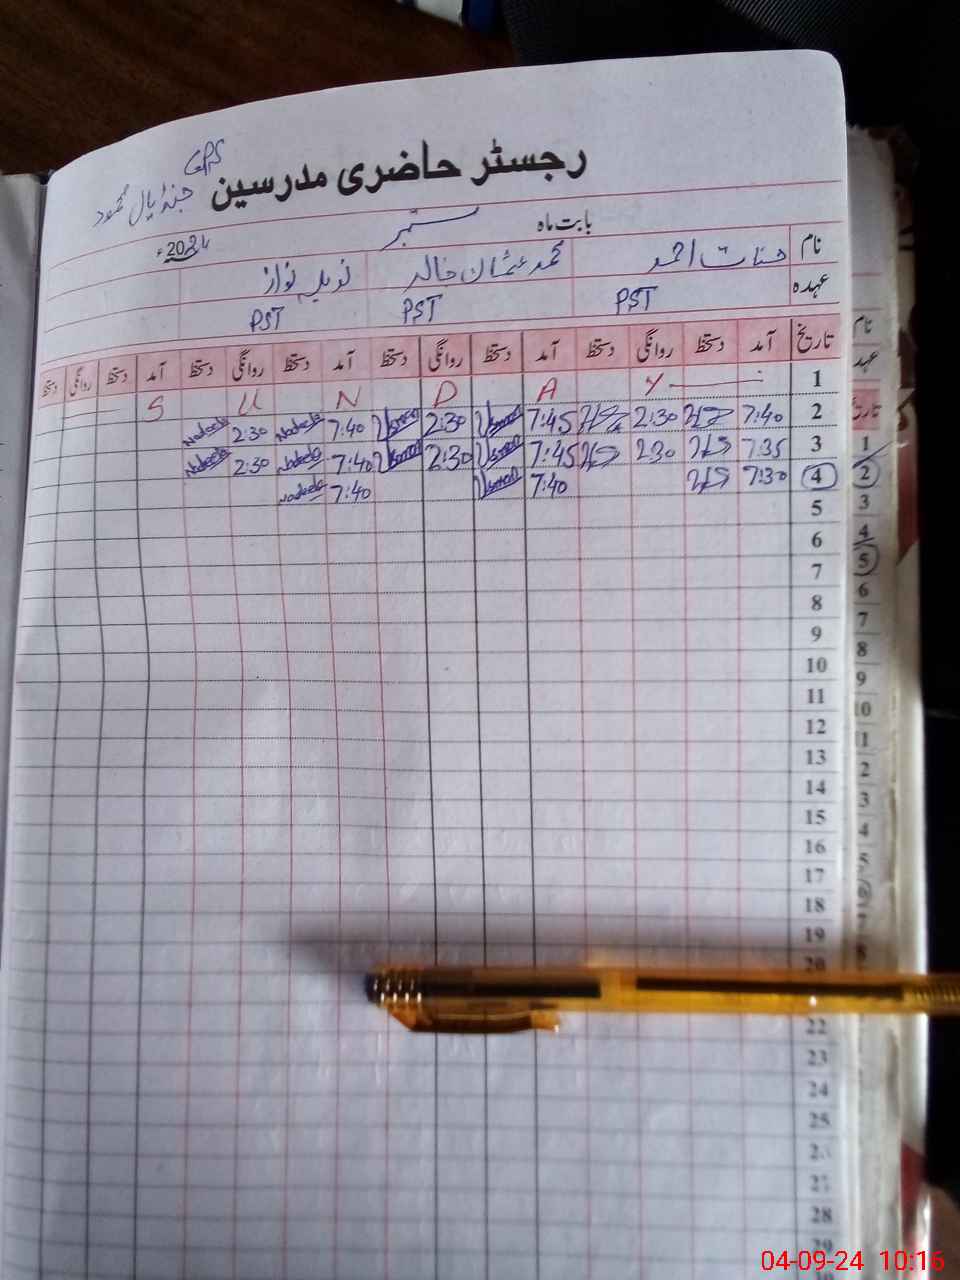 GPS
رجسٹر حاضری مدرسین
جنڈیال محمود
بابت ماہ ستمبر 2024ء
نام حسنات احمد محمد عثمان خالد نویلہ نواز
عہدہ PST PST PST
تاریخ آمد دستخط روانگی دستخط آمد دستخط روانگی دستخط آمد دستخط روانگی دستخط آمد دستخط روانگی دستخط
1 S U N D A Y
2 7:40 2:30 7:45 Usman 2:30 Usman 7:40 Nadeela 2:30 Nadeela
3 7:35 2:30 7:45 Usman 2:30 Usman 7:40 Nadeela 2:30 Nadeela
4 7:30 7:40 Usman 7:40 Nadeela
5
6
7
8
9
10
11
12
13
14
15
16
17
18
19
20
22
23
24
25
26
27
28
29
نام
عہد
1
2
3
4
5
6
7
8
9
10
04-09-24 10:16